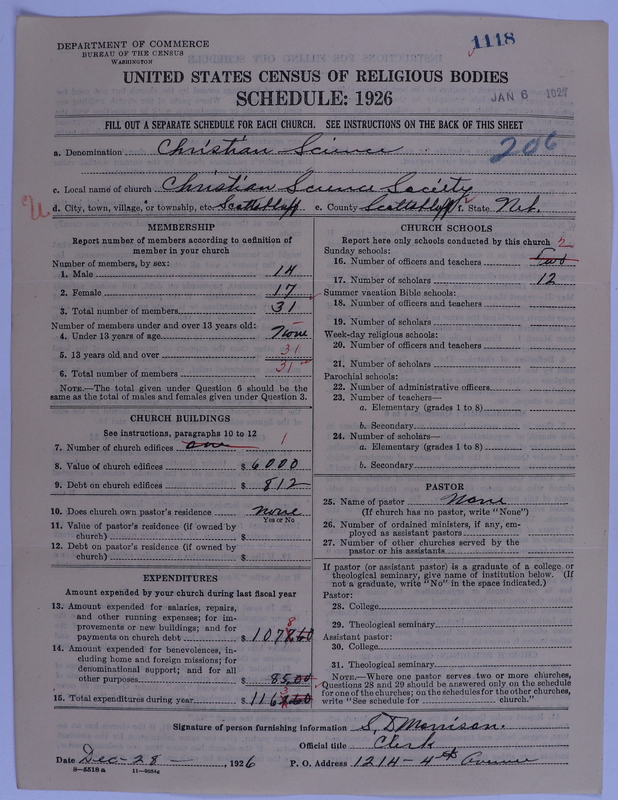 1118
DEPARTMENT OF COMMERCE
BUREAU OF THE CENSUS
WASHINGTON
UNITED STATES CENSUS OF RELIGIOUS BODIES
SCHEDULE: 1926
JAN 6 1927
FILL OUT A SEPARATE SCHEDULE FOR EACH CHURCH. SEE INSTRUCTIONS ON THE BACK OF THIS SHEET
a. Denomination Christian Science
206
c. Local name of church Christian Science Society
d. City, town, village, or township, etc. Scottsbluff e. County Scottsbluff f. State Neb.
MEMBERSHIP
Report number of members according to definition of
member in your church
Number of members, by sex:
1. Male 14
2. Female 17
3. Total number of members 31
Number of members under and over 13 years old:
4. Under 13 years of age None
5. 13 years old and over 31
6. Total number of members 31
NOTE.—The total given under Question 6 should be
same as the total of males and females given under Question 3.
CHURCH BUILDINGS
See instructions, paragraphs 10 to 12
7. Number of church edifices one 1
8. Value of church edifices $6000
9. Debt on church edifices $812
10. Does church own pastor's residence none
Yes or No
11. Value of pastor's residence (if owned by
church) $
12. Debt on pastor's residence (if owned by
church) $
EXPENDITURES
Amount expended by your church during last fiscal year
13. Amount expended for salaries, repairs,
and other running expenses; for im-
provements or new buildings; and for
payments on church debt $107
14. Amount expended for benevolences, in-
cluding home and foreign missions; for
denominational support; and for all
other purposes $85.00
15. Total expenditures during year $116
CHURCH SCHOOLS
Report here only schools conducted by this church
Sunday schools:
16. Number of officers and teachers two 2
17. Number of scholars 12
Summer vacation Bible schools:
18. Number of officers and teachers
19. Number of scholars
Week-day religious schools:
20. Number of officers and teachers
21. Number of scholars
Parochial schools:
22. Number of administrative officers
23. Number of teachers—
a. Elementary (grades 1 to 8)
b. Secondary
24. Number of scholars—
a. Elementary (grades 1 to 8)
b. Secondary
PASTOR
25. Name of pastor None
(If church has no pastor, write "None")
26. Number of ordained ministers, if any, em-
ployed as assistant pastors
27. Number of other churches served by the
pastor or his assistants
If pastor (or assistant pastor) is a graduate of a college or
theological seminary, give name of institution below. (If
not a graduate, write "No" in the space indicated.)
Pastor:
28. College
29. Theological seminary
Assistant pastor:
30. College
31. Theological seminary
NOTE.—Where one pastor serves two or more churches,
Questions 28 and 29 should be answered only on the schedule
for one of the churches; on the schedules for the other churches,
write "See schedule for church."
Signature of person furnishing information S. D. Morrison.
Official title Clerk
Date Dec-28-, 1926 P. O. Address 1214-4th Avenue
8-5518 a 11-9084g